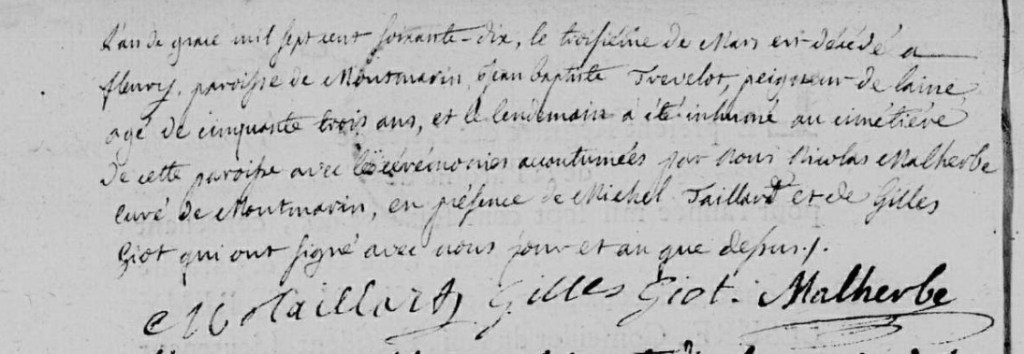 L'an de grace mil sept cent soixante-dix, le troisième de Mars est décédé a
fleury, paroisse de Montmarin, Jean Baptiste Trevelot, peigneur de laine
agé de cinquante trois ans, et le lendemain a été inhumé au cimétière
De cette paroisse avec les cérémonies accoutumées par Nous Nicolas Malherbe
curé de Montmarin, en présence de Michel Taillard et de Gilles
Giot qui ont signé avec nous jour et an que dessus ./.
M Taillard Gilles Giot. Malherbe